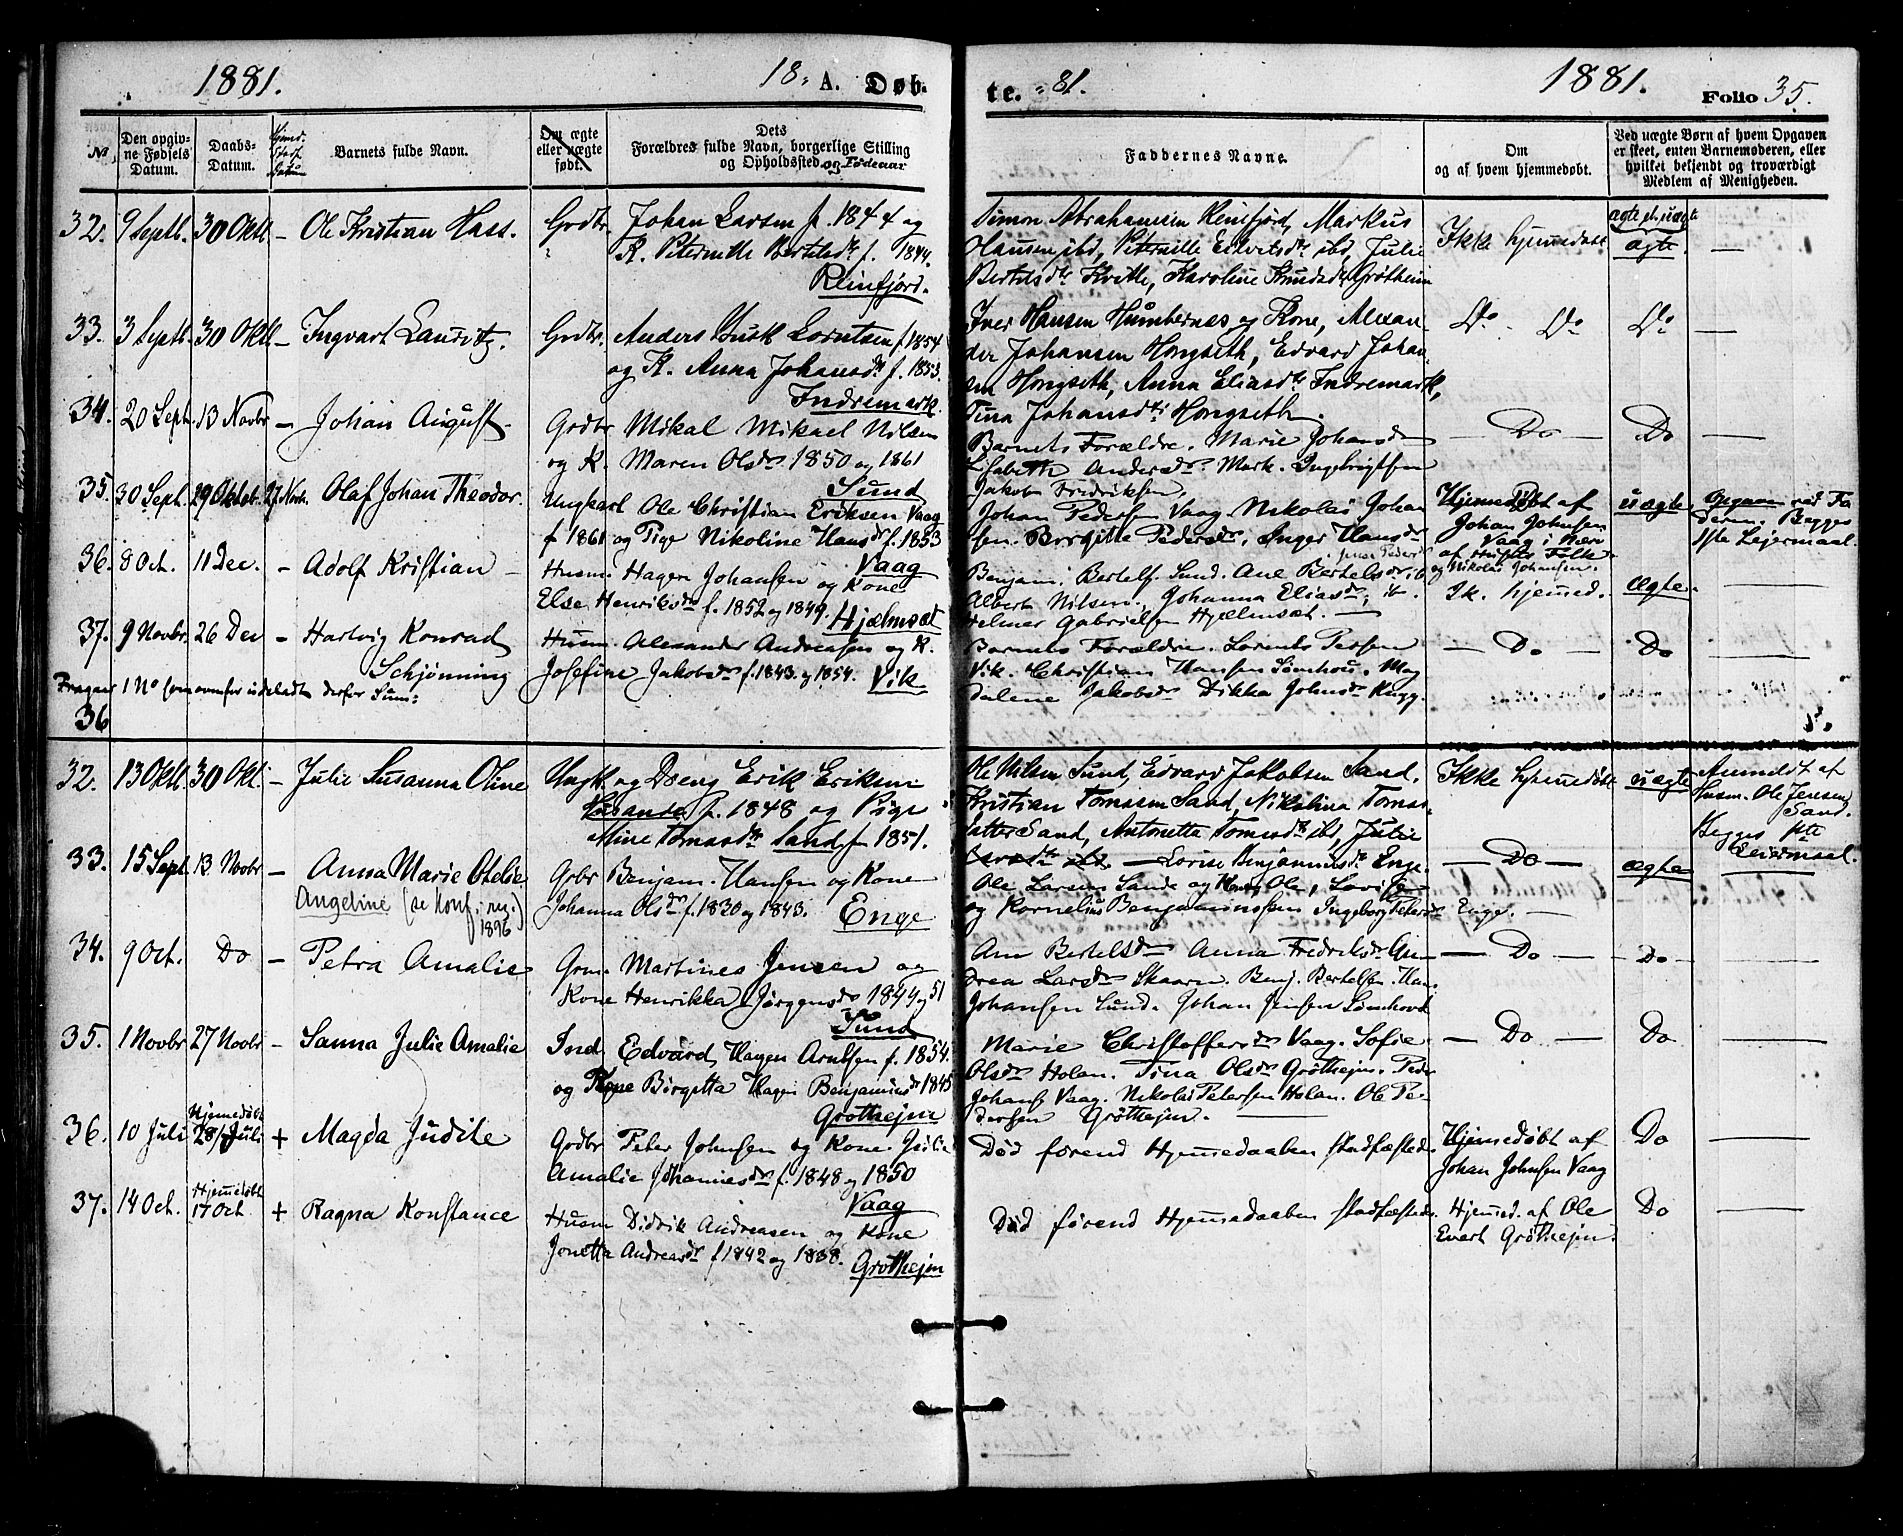 1881.
18
A. Døb-
te. 81.
1881.
Folio 35.
No.
Den opgiv-
ne Fødsels
Datum.
Daabs-
Datum.
Barnets fulde Navn.
Om ægte
eller uægte
født.
Dets
Forældres fulde Navn, borgerlige Stilling
og Opholdssted og Fødeaar
Faddernes Navne.
Om
og af hvem hjemmedøbt.
Ved uægte Børn af hvem Opgaven
er skeet, enten Barnemoderen, eller
hvilket bekjendt og troværdigt
Medlem af Menigheden.
32. 9 Septb. 30 Oktb - Ole Kristian Hass. Gdbr. Johan Larsen f. 1844 og
K. Peternille Bertelsdtr f. 1844.
Reinfjord.
Simon Abrahamsen Reinfjord, Markus
Hansen ibd, Peternille Edvetsdtr ibd, Julie
Bertelsdtr Hvitte, Karoline Knudsdtr Grøtheim
Ikke hjemmedøbt
ægte el. uægte
ægte. —
33. 3 Septb. 30 Oktb - Ingvart Lauritz. Gdbr. Anders Buck Lorntsen f. 1854
og K. Anna Johansdtr f. 1853.
Indremark.
Iver Hansen Humbernes og Kone, Alexan-
der Johansen Hongseth, Edvard Johan-
sen Hongseth, Anna Eliasdtr Indremark,
Tina Johansdtr Hongseth.
Do - Do
Do —
34. 20 Sept. 13 Novbr - Johan August. Gdbr Mikal Mikael Nilsen
og K. Maren Olsdr 1850 og 1861
Sund
Barnets Forældre. Marie Johansdr
Lisabeth Andersdr. Mark. Ingebrigtsen
Jakob Fredriksen.
— Do — Do —
35. 30 Sept. 29 Oktob. 27 Novb. Olaf Johan Theodor. Ungkarl Ole Christian Eriksen Vaag
f 1861 og Pige Nikoline Hansdr f. 1853
Vaag
Johan Pedersen Vaag. Nikolai Johan
sen. Birgitte Pedersdr, Inger Hansdr
Jense Pedersdr
Hjemmedøbt af
Johan Johnsen
Vaag i Nær
og Nikolai Johansen.
uægte. Opgaven ved Fa
deren. Begges
1ste Lejermaal.
36. 8 Oct. 11 Dec. - Adolf Kristian — Husm. Hagen Johansen og Kone
Else Henriksdr f. 1852 og 1849. Hjælmsæt
Benjam. Bertels. Sund. Ane Bertelsdr ib
Albert Nilsen, Johanna Eliasdr, ib.
Helmer Gabrielsen Hjælmsæt. —
Ik. hjemmed. ægte —
37. 9 Novbr. 26 Dec - Hartvig Konrad
Schjønning
Husm. Alexander Andreasen og K.
Josefine Jakobsdr f. 1843 og 1854. Vik
Barnets Forældre. Lorents Persen
Vik. Christian Hansen Sømhou. Mag
dalene Jakobsdr Dikka Johnsdr
— Do — Do —
1 No som ovenfor udeladt derfor Sum:
36
32. 13 Oktb. 30 Okt. - Julie Susanna Oline Ungk og Dreng Erik Eriksen
f. 1848 og Pige
Mine Tomasdtr Sand f 1851.
Ole Nilsen Sund, Edvard Jakobsen Sand,
Kristian Tomassen Sand, Nikoline Tomas-
datter Sand, Antonetta Tomasdtr ibd, Julie
Ikke hjemmedøbt uægte Anmeldt af
Husm. Ole Jensen
Sand.
Begges 1ste
Leiermaal.
33. 15 Sept. 13 Novbr - Anna Marie Otelie
Angeline (se konf. reg.
1896)
Grbr Benjam. Hansen og Kone
Johanna Olsdr f. 1820 og 1843. Enge
— Lovise Benjaminsdr Enge.
Ole Larsen Sande og Kone, Ole, Lovise
og Kornelius Benjaminssen Ingeborg Petersdr Enge. —
— Do — ægte —
34. 9 Oct. Do - Petra Amalie Grm. Martines Jensen og
Kone Henrikka Jørgensdr 1844 og 51
Sund
Ann Bertelsdr Anna Fredriksdr An
drea Larsdr Skaaren. Benj. Bertelsen. Han
Johansen Sund. Johan Jensen Sømhovd
— Do — Do —
35. 1 Novbr 27 Novbr - Sanna Julie Amalie Ind. Edvard Hagen Arntsen f. 1854.
og Kone Birgitta Hagen Benjaminsdr 1845
Grøthejm
Marie Christoffersdr Vaag. Sofie
Olsdr Holan. Tina Olsdr Grøthejm. Peder
Johans Vaag. Nikolai Petersen Holan. Ole Pe-
dersen Grøthejm. —
— Do — Do. —
36. 10 Juli Hjemmedøbt
28/7 Juli + Magda Judite Gdbr Peter Johnsen og Kone Julie
Amalie Johannesdr f. 1848 og 1850
Vaag
Død førend Hjemmedaaben stadfæstedes
Hjemmedøbt af
Johan Johnsen Vaag
Do —
37. 14 Oct. Hjemmedøbt
17 Oct. + Ragna Konstance Husm Didrik Andreasen og Kone
Jonetta Andreasdr f 1842 og 1838. Grøthejm
Død førend Hjemmedaaben stadfæstedes
Hjemmed. af Ole
Evert Grøthejm.
Do —